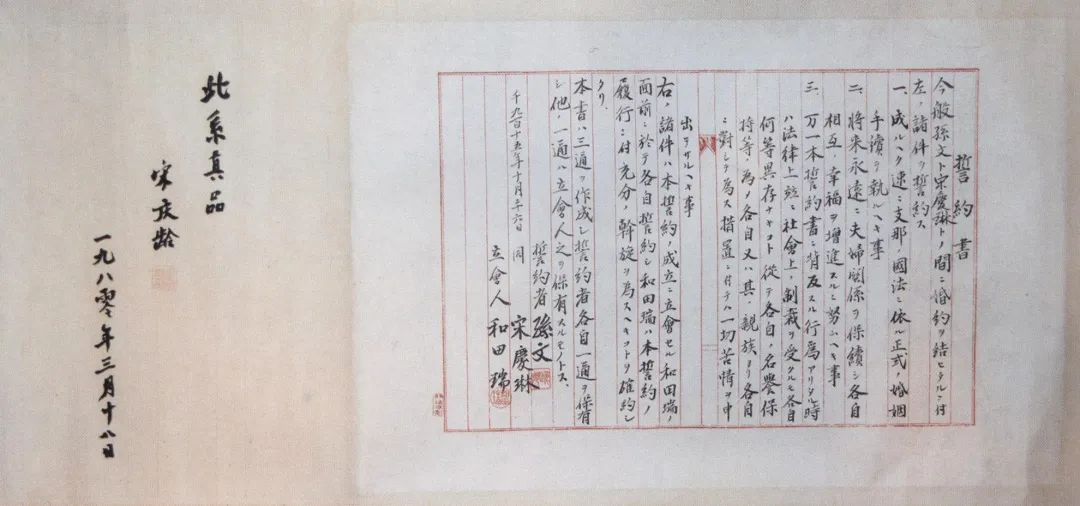 誓約書
今般孫文ト宋慶琳トノ間ニ婚約ヲ結ヒタルニ付
左ノ諸件ヲ誓約ス
一、成ルヘク速ニ支那ノ國法ニ依ル正式ノ婚姻
手續ヲ執ルヘキ事
二、将来永遠ニ夫婦関係ヲ保續シ各自
相互ノ幸福ヲ増進スルニ努ムヘキ事
三、万一本誓約書ニ背反スル行為アリタル時
ハ法律上竝ニ社會上ノ制裁ヲ受クルモ各自
何等異存ナキコト從テ各自ノ名譽保
持等ノ為メ各自又ハ其ノ親族ヨリ各自
ニ對シテ為ス措置ニ付テハ一切苦情ヲ申
出テサルヘキ事
右ノ諸件ハ本誓約ノ成立ニ立會セル和田瑞ノ
面前ニ於テ各自誓約シ和田瑞ハ本誓約ノ
履行ニ付充分ノ斡旋ヲ為スヘキコトヲ確約シ
タリ.
本書ハ三通ヲ作成シ誓約者各自一通ヲ保有
シ他ノ一通ハ立會人之ヲ保有スルモノトス.
千九百十五年十月二十六日
誓約者 孫文
同 宋慶琳
立會人 和田瑞
此系真品
宋庆龄
一九八零年三月十八日